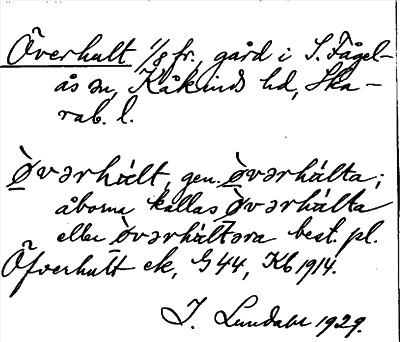 Överhult 1/8 fr., gård i S. Fågel-
ås sn, Kåkinds hd, Ska-
rab. l.
Òvərhùlt, gen. Òvərhúlta;
åborna kallas Òvərhúlta
eller òvərhúltəra best. pl.
Öfverhult ek, G 44, Kb 1914.
I. Lundahl 1929.